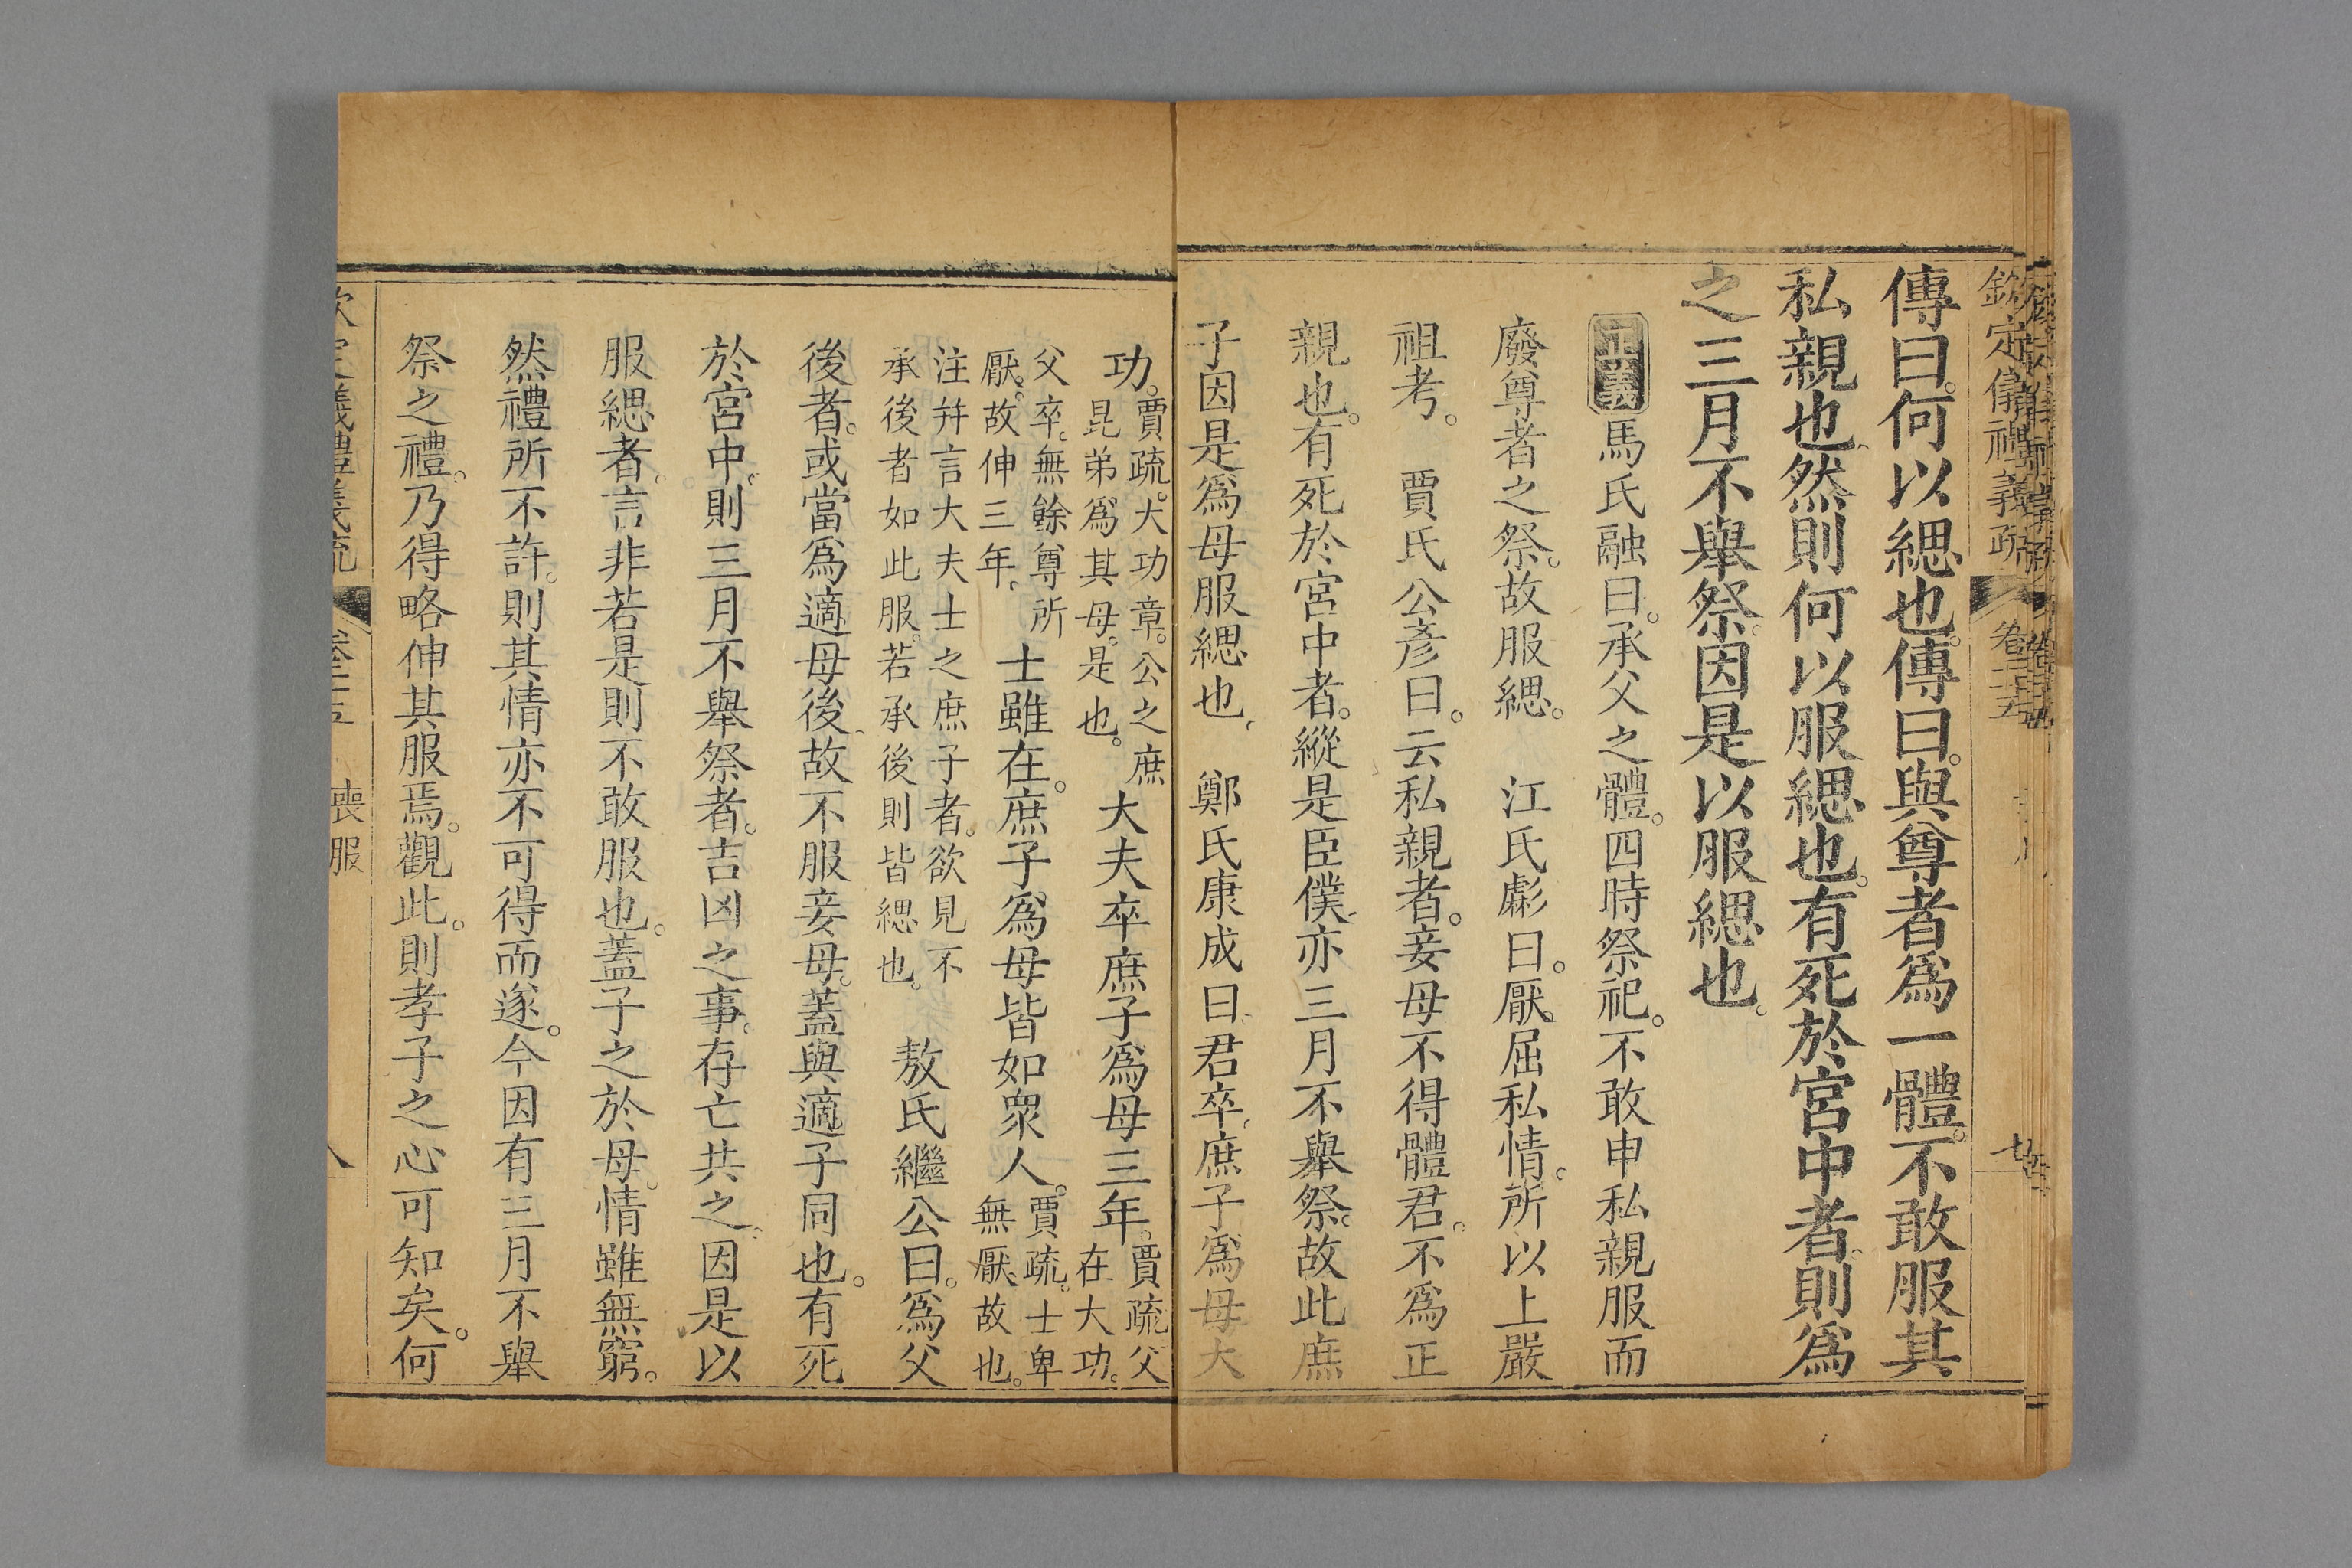 欽定儀禮義疏 卷二十五 七
傳曰。何以緦也。傳曰。與尊者爲一體。不敢服其
私親也。然則何以服緦也。有死於宮中者。則爲
之三月不舉祭。因是以服緦也。
正義 馬氏融曰。承父之體。四時祭祀。不敢申私親服而
廢尊者之祭。故服緦。 江氏彪曰。厭屈私情。所以上嚴
祖考。 賈氏公彥曰。云私親者。妾母不得體君。不爲正
親也。有死於宮中者。縱是臣僕。亦三月不舉祭。故此庶
子因是爲母服緦也。 鄭氏康成曰。君卒。庶子爲母大
功。賈疏。大功章。公之庶昆弟爲其母。是也。大夫卒。庶子爲母三年。賈疏父在大功。
父卒。無餘尊所厭。故伸三年。士雖在。庶子爲母皆如眾人。賈疏。士卑無厭故也。
注幷言大夫士之庶子者。欲見不承後者如此服。若承後則皆緦也。 敖氏繼公曰。爲父
後者。或當爲適母後。故不服妾母。蓋與適子同也。有死
於宮中。則三月不舉祭者。吉凶之事。存亡共之。因是以
服緦者。言非若是則不敢服也。蓋子之於母。情雖無窮。
然禮所不許。則其情亦不可得而遂。今因有三月不舉
祭之禮。乃得略伸其服焉。觀此。則孝子之心可知矣。何
欽定儀禮義疏 卷二十五 喪服 八